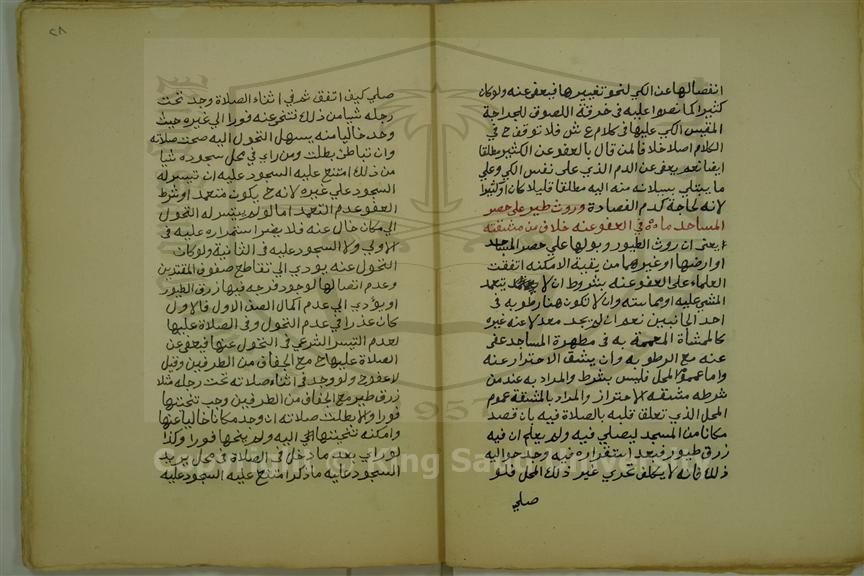 انفصالها عن الكي لنحو تغييرها فيعفى عنه ولو كان
كثيرا كما نصوا عليه في خرقة اللصوق للجراحة
المقيس الكي عليها في كلام ع ش فلا توقف ح في
الكلام اصلا خلافا لمن قال بالعفو عن الكثير مطلقا
ايضا نعم يعفى عن الدم الذي على نفس الكي وعلي
ما يبتلي بسيلانه منه اليه مطلقا قليلا كان او كثيرا
لانه لحاجة كدم الفصادة وروث طيور على حصر
المساجد في العفو عنه خلاف من مشقته
يعني ان روث الطيور وبولها علي حصر المساجد
او ارضها او غيرهما من بقية الامكنه اتفقت
العلماء على العفو عنه بشروط ان لا يتعمد
المشي عليه او مماسته وان لا تكون هنا رطوبه في
احد الجانبين نعم ان لم يجد معدلا عنه غيره
كالمشأة المعممة به في مطهرة المساجد عفى
عنه مع الرطوبه وأن يشق الاحتراز عنه
واما عموم المحل فليس بشرط والمراد به عند من
شرطه مشقه الاحتراز والمراد بالمشقة عموم
المحل الذي تعلق قلبه بالصلاة فيه بان قصد
مكانا من المسجد ليصلي فيه ولم يعلم ان فيه
زرق طيور فبعد استقراره فيه وجد حواليه
ذلك فانه لا يكلف تحري غير ذلك المحل فلو
صلي
٢٨
صلي كيف اتفق ثم في اثناء الصلاة وجد تحت
رجله شيا من ذلك تنحى عنه فورا الي غيره حيث
وجد خاليا منه يسهل التحول اليه صحت صلاته
وان تباطئ بطلت ومن راي في محل سجوده شيا
من ذلك امتنع عليه السجود عليه ان تيسر له
السجود علي غيره لانه ح يكون متعمد او شرط
العفو عدم التعمد اما لو لم يتيسر له التحول
الي مكان خال عنه فلا يضر استمراره عليه في
الاولي ولا السجود عليه في الثانية ولو كان
التحول عنه يودي الي تقاطع صفوف المقتدين
وعدم اتصالها لوجود فرجه فيها زرق الطيور
او يؤدي الي عدم اكمال الصف الاول فالاول
كان عذرا في عدم التحول وفي الصلاة عليها
لعدم التيسر الشرعي في التحول عنها فيعفى عن
الصلاة عليها ح مع الجفاف من الطرفين وقيل
لا عفو ح ولو وجد في اثناء صلاته تحت رجله مثلا
زرق طير مع الجفاف من الطرفين وجب تنحيتها
فورا والا بطلت صلاته ان وجد مكانا خاليا عنها
وامكنه تنحيتها الي اليه ولم ينحها فورا وكذا
لو راي بعد ما دخل في الصلاة في محل يريد
السجود عليه ما ذكر امتنع عليه السجود عليه
Copyright © King Saud University
1957